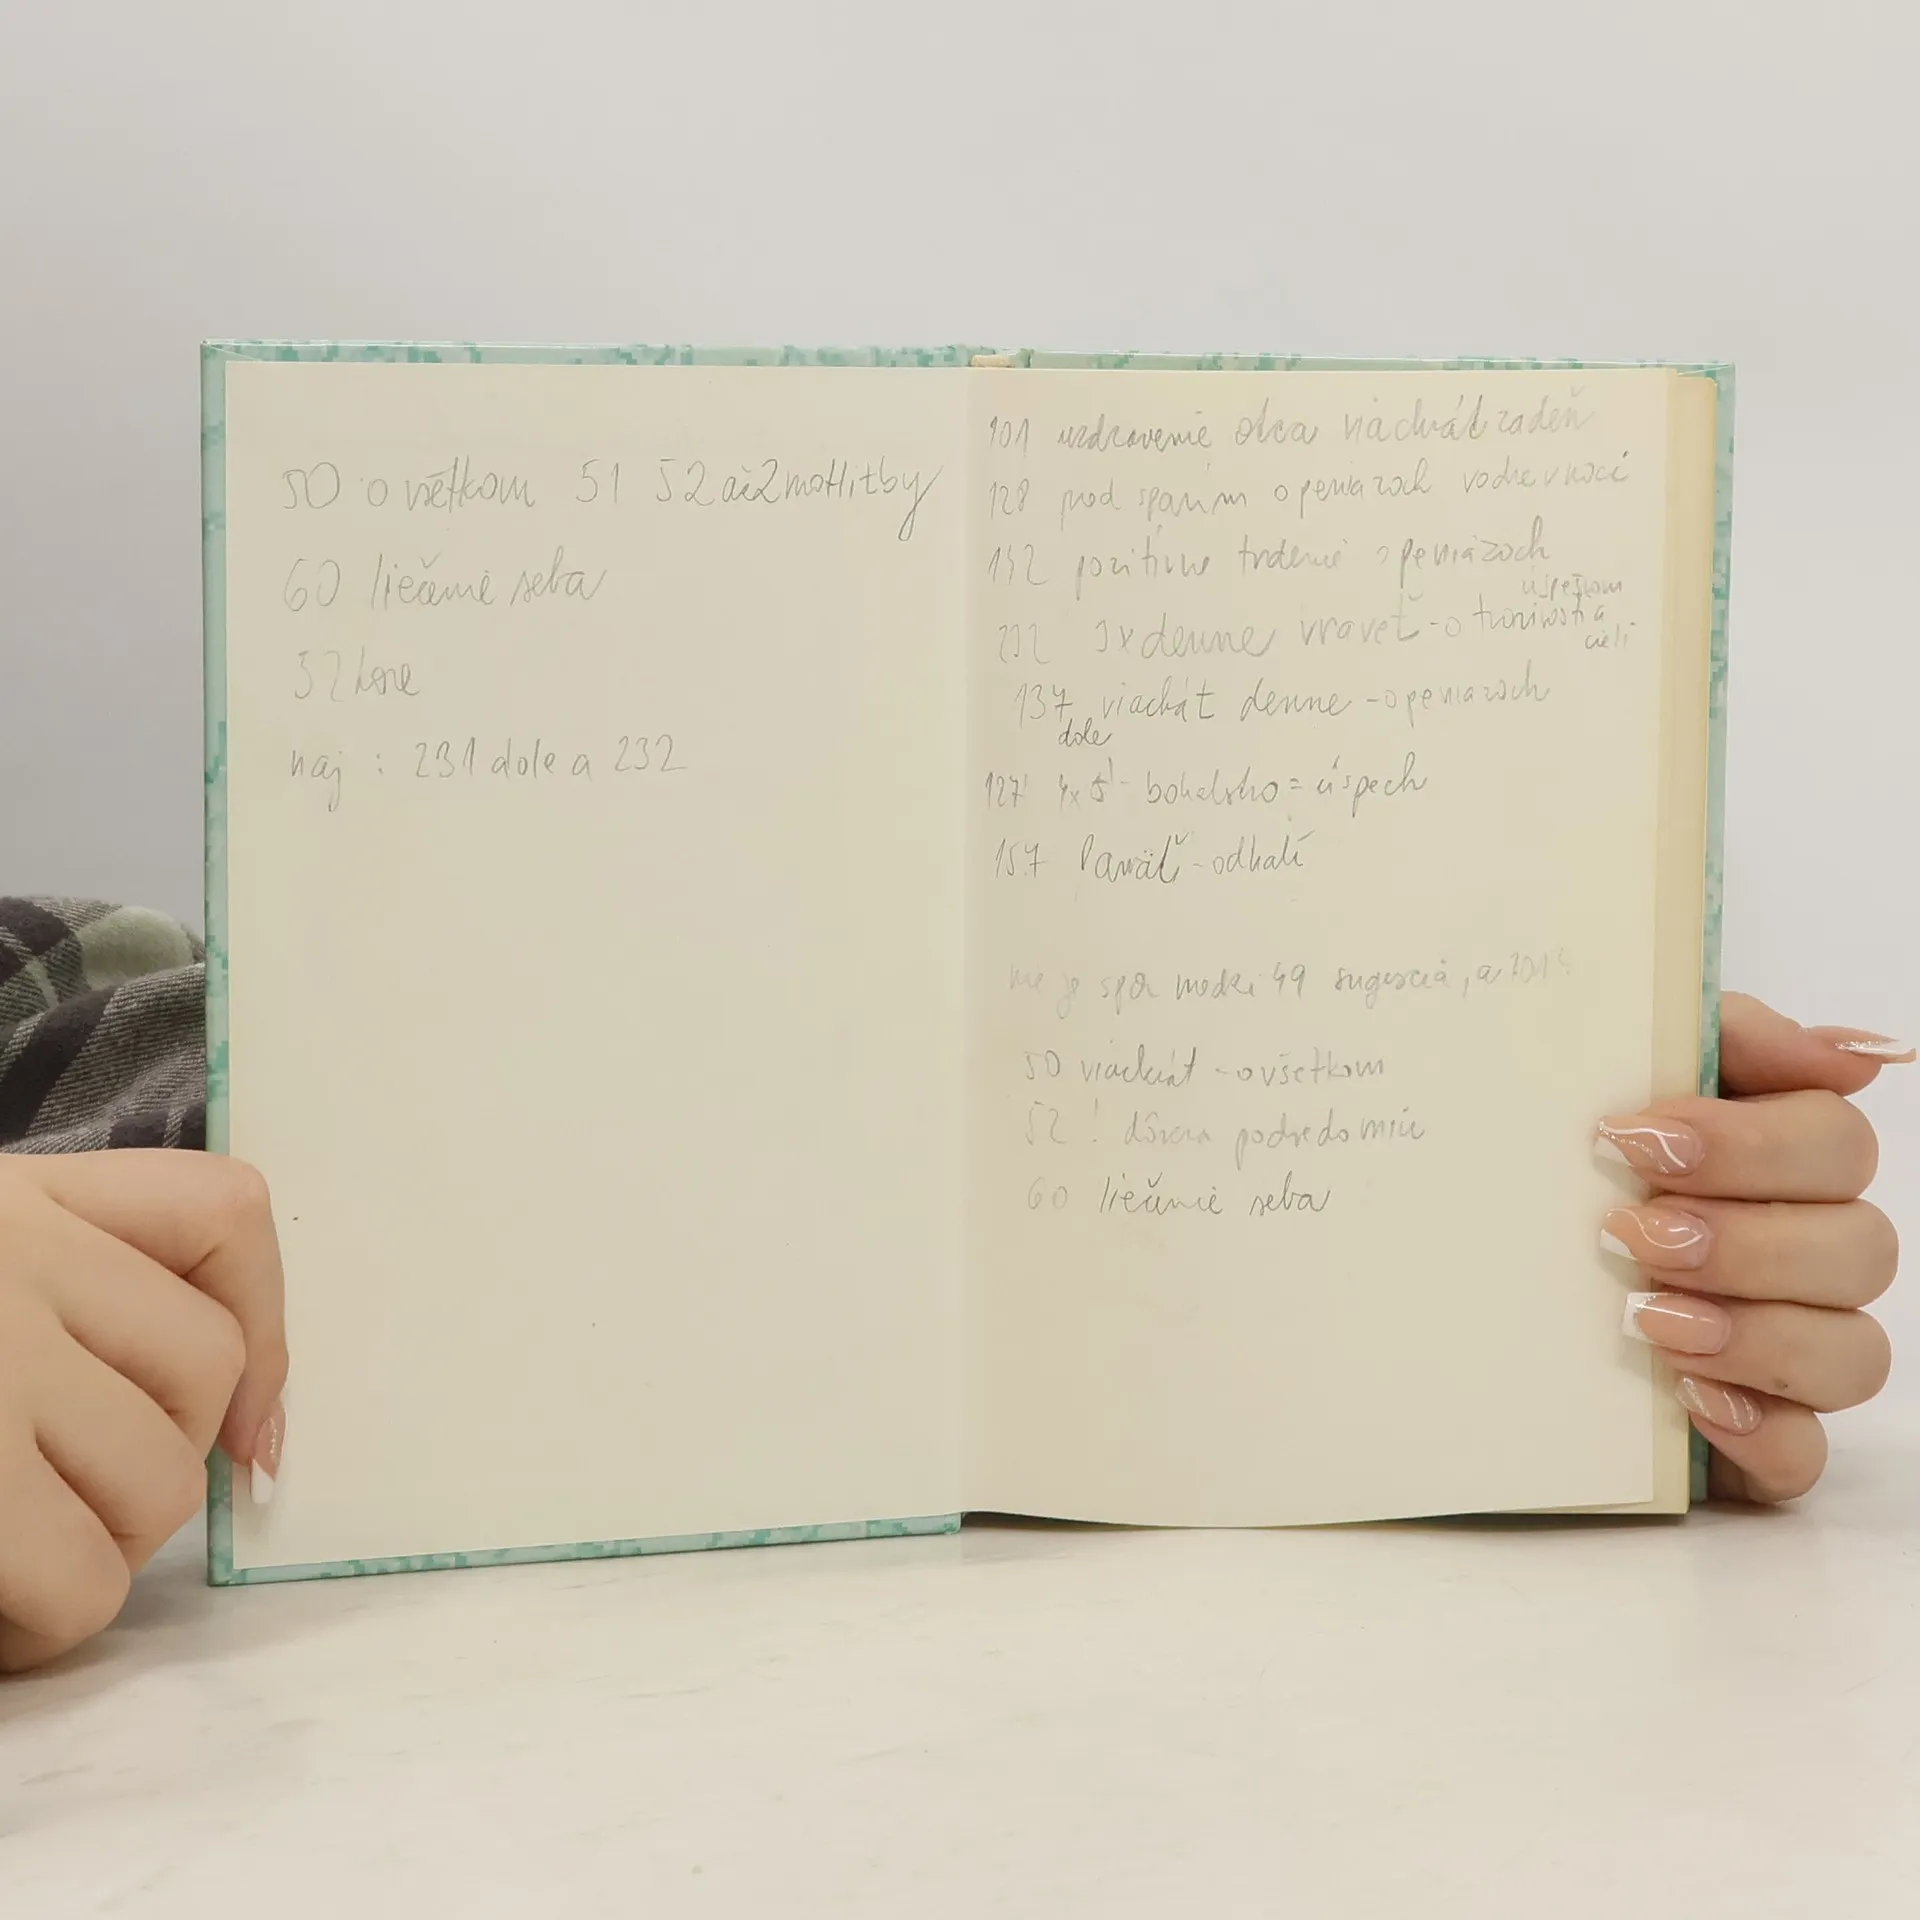 50 o všetkom 51 52 až 2 motlitby
60 liečenie seba
52 hore
naj : 231 dole a 232
101 uzdravenie otca viackrát zadeň
128 pred spaním o peniazoch vodne v noci
142 pozitívne trdenie o peniazoch
232 3x denne vraveť - o tvorivosti a úspešnom cieli
137 viackrát denne - o peniazoch
dole
127 4x 5' - bohatstvo = úspech
157 Pamäť - odhalí
nie je spor medzi 49 sugescia, a
50 viackrát - o všetkom
52 ! dôvera podvedomiu
60 liečenie seba